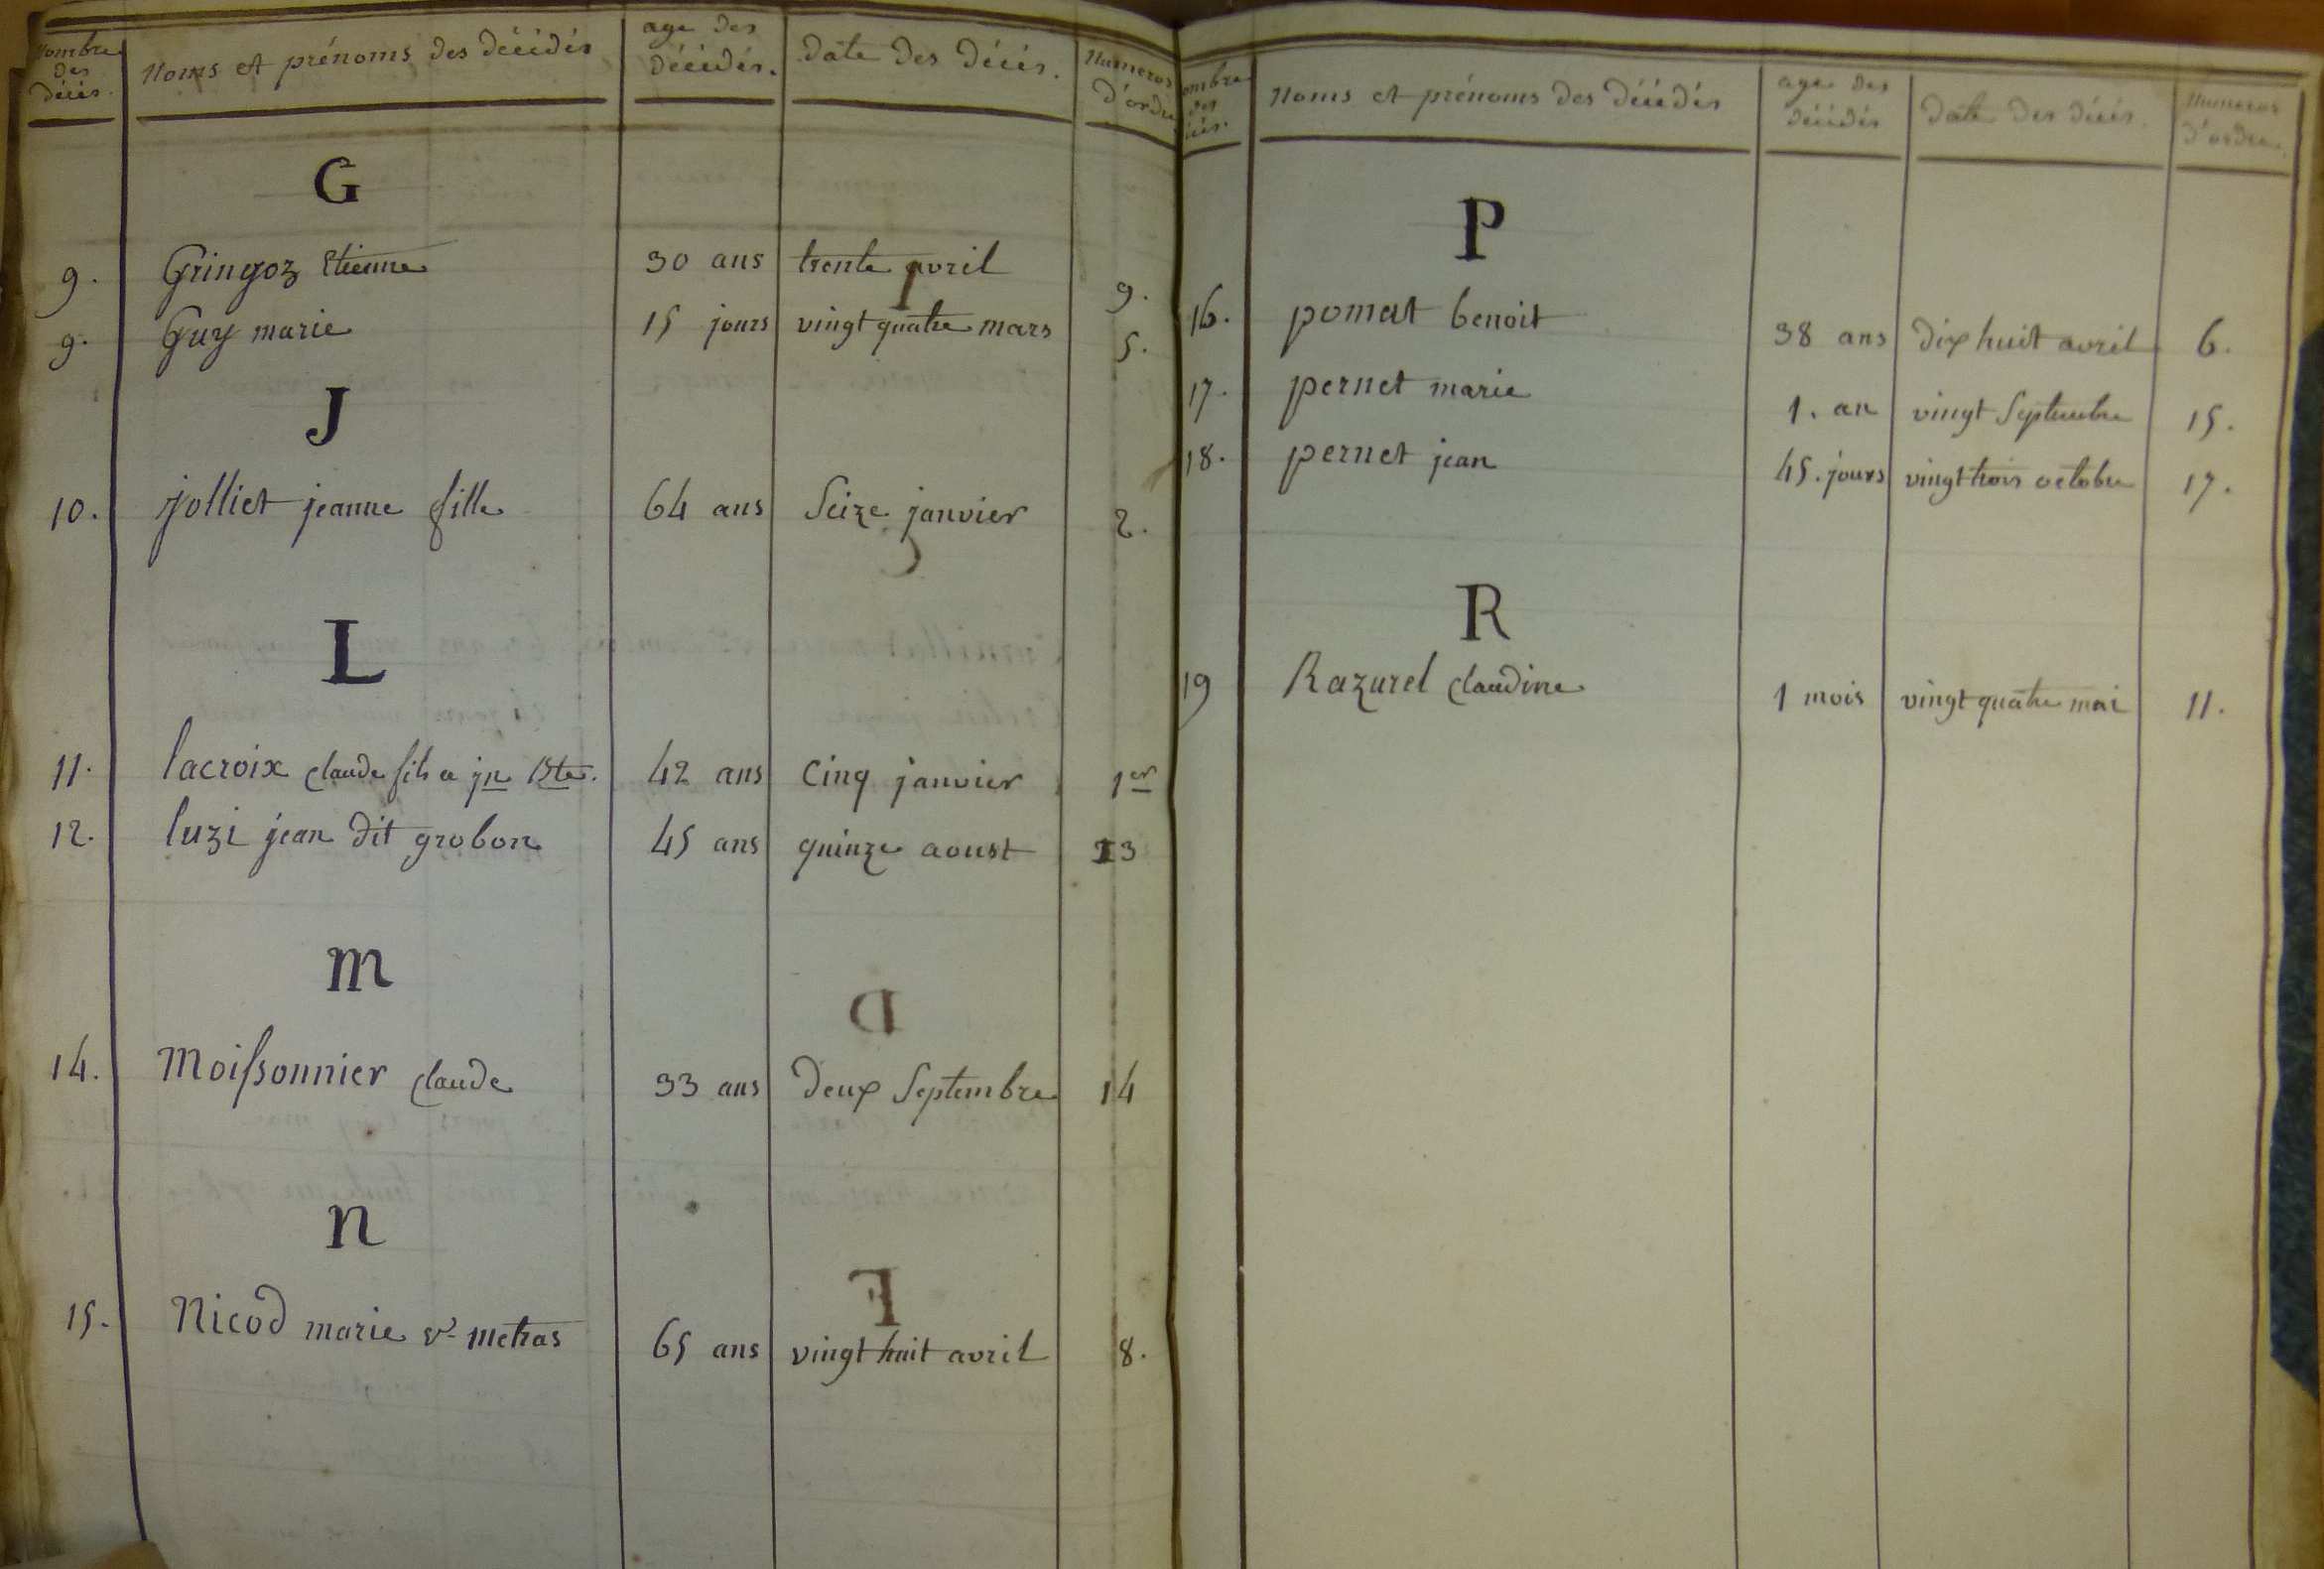 Nombre des décès. Noms et prénoms des décédés age des décédés. Date des décès. Numeros d'ordre
G
9. Gringoz Etienne 30 ans trente avril 9.
9. Guy marie 15 jours vingt quatre mars 5.
J
10. jolliet jeanne fille 64 ans Seize janvier 2.
L
11. lacroix claude fils a jn Bte. 42 ans Cinq janvier 1er
12. luzi jean dit grobon 45 ans quinze aoust 13
M
14. Moissonnier claude 33 ans Deux Septembre 14
N
15. Nicod marie ve metras 65 ans vingt huit avril 8.
ombre des cès. Noms et prénoms des décédés age des décédés Date des décès. Numeros d'ordre.
P
16. pomat benoit 38 ans dix huit avril 6.
17. pernet marie 1. an vingt Septembre 15.
18. pernet jean 45. jours vingt trois octobre 17.
R
19 Razurel claudine 1 mois vingt quatre mai 11.